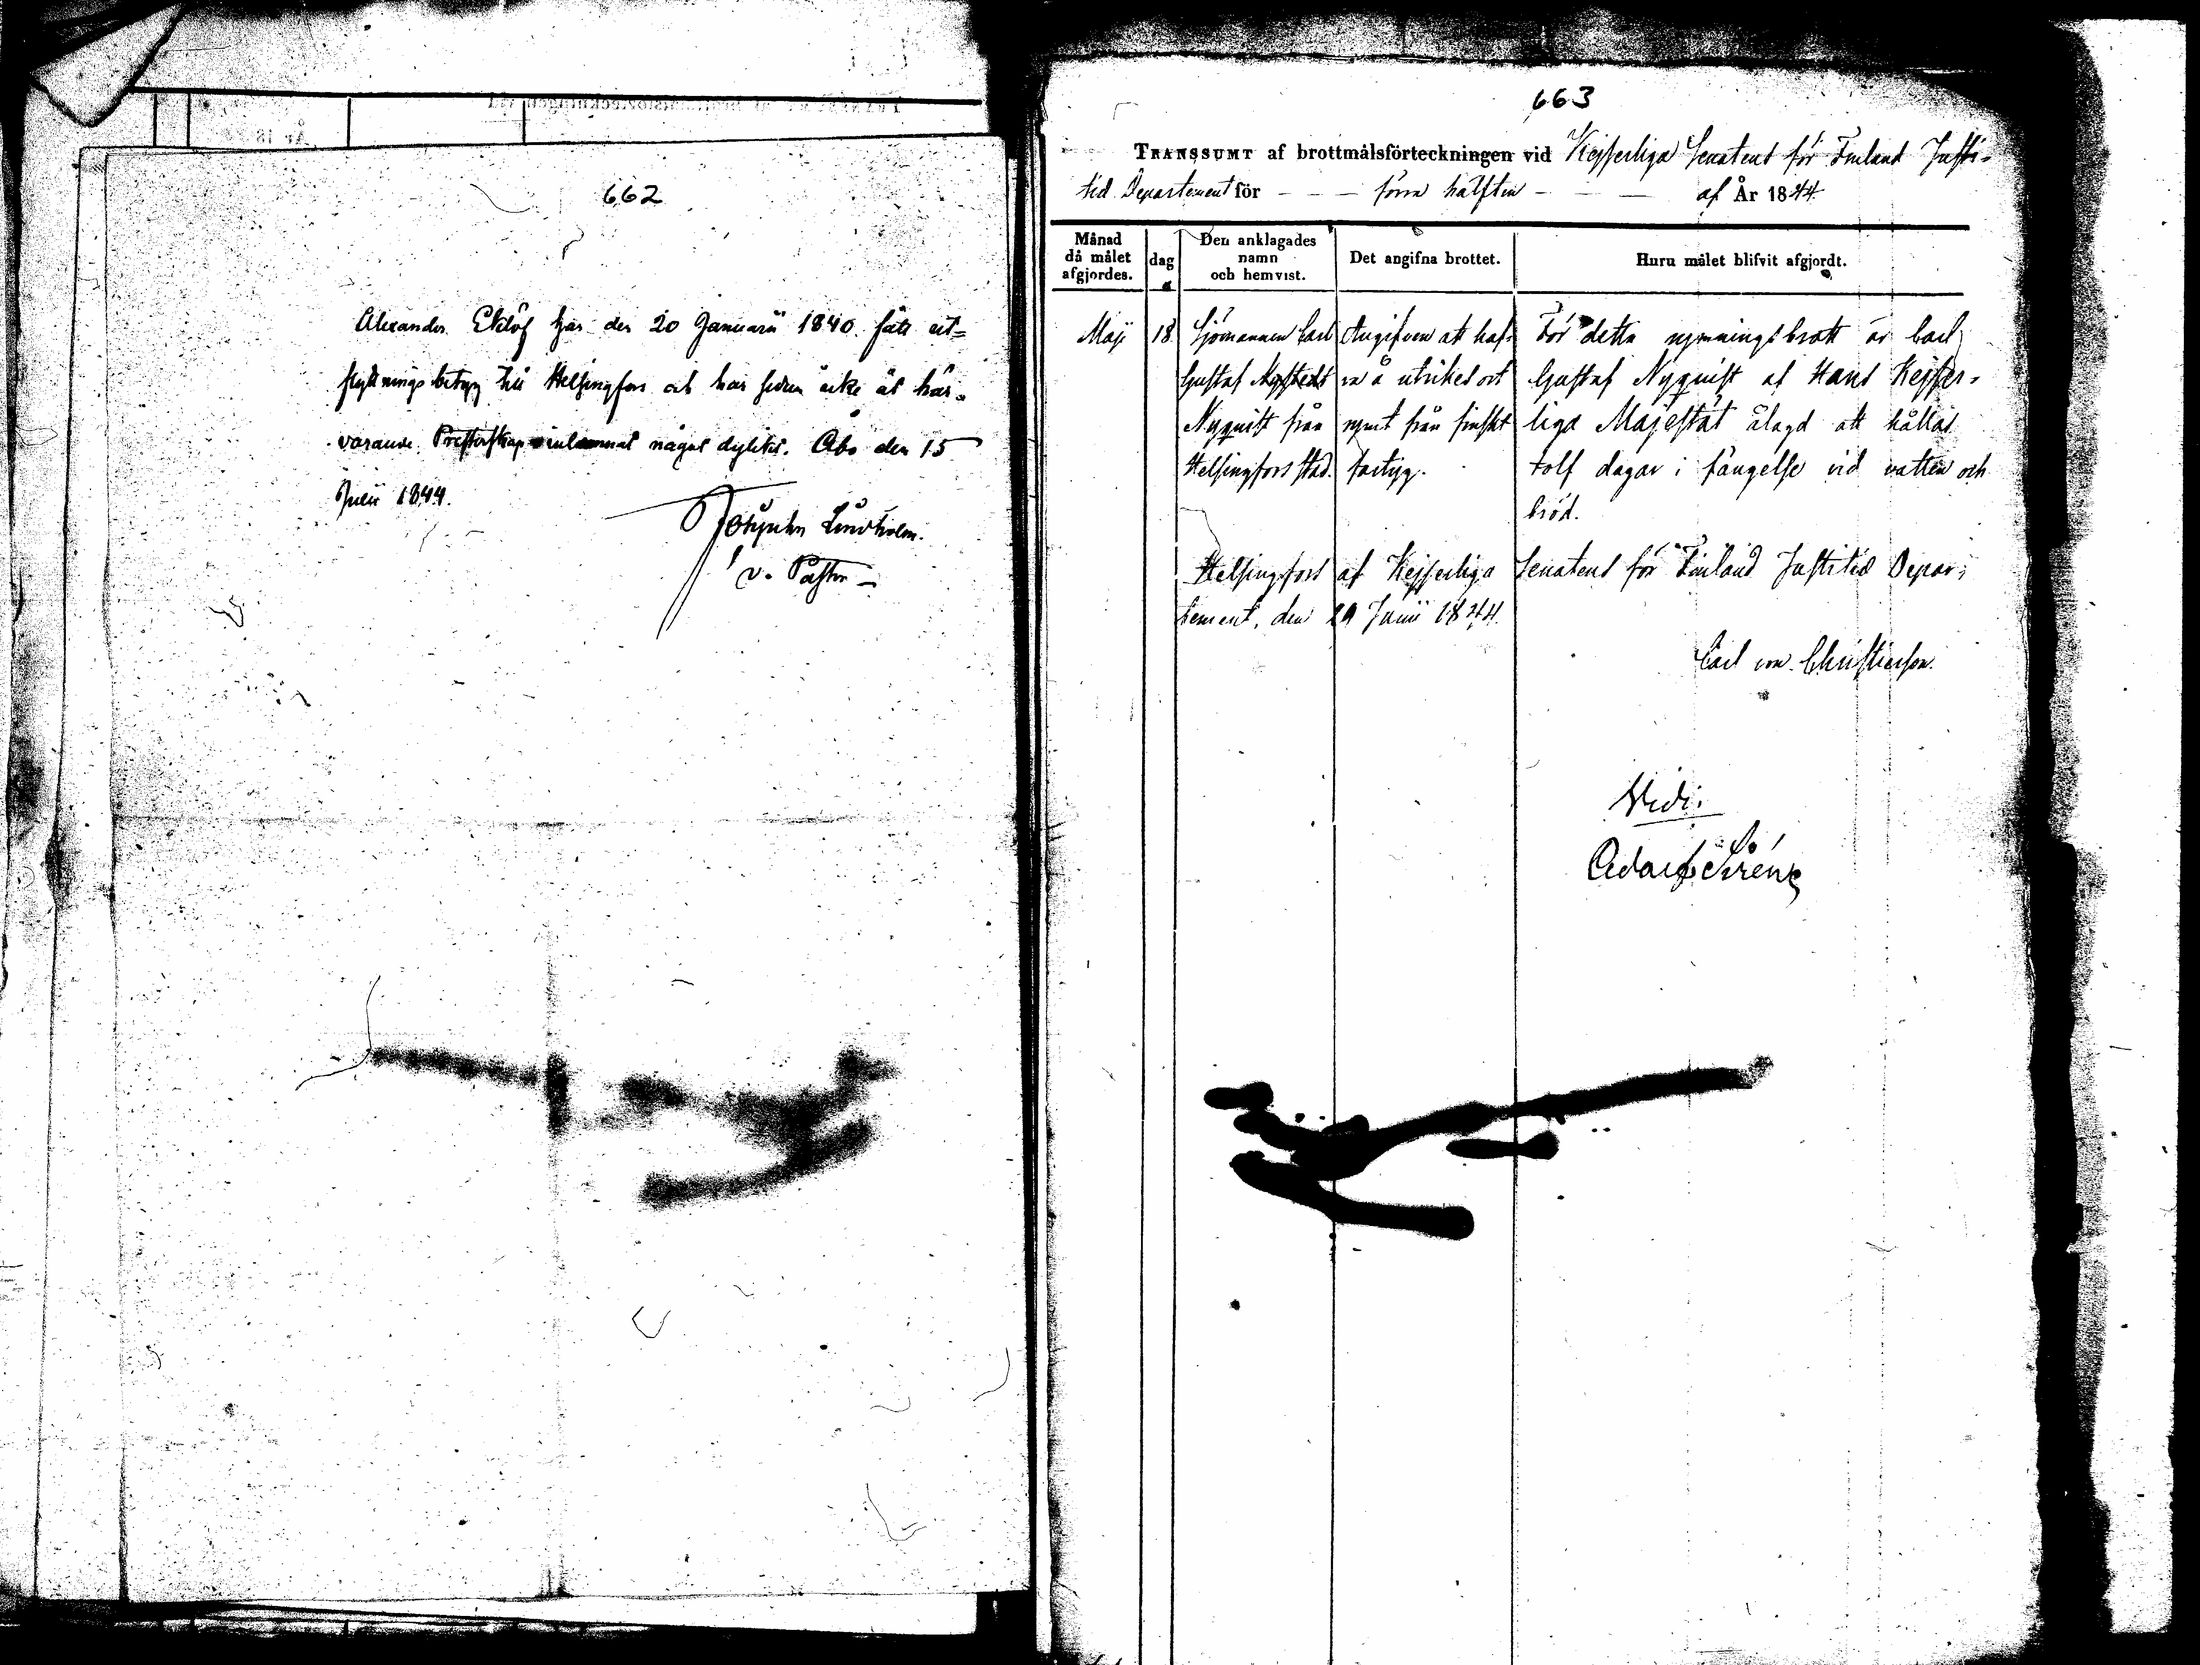 662
Alexander Eklöf här den 20 Januarii 1840 fått ut=
flyttningsbetyg till Helsingfors och har sedan icke åt här-
varande Presterskap inlemnat något dylikt. Åbo den 15
Julii 1844.
Lindholm.
v. Pastor
663
TRANSSUMT af brottmålsförteckningen vid Kejserliga Senatens för Finland Justi-
tiæ Departement för - - - förra hälften - - af År 1844.
Månad då målet afgjordes. dag Den anklagades namn och hemvist. Det angifna brottet. Huru målet blifvit afgjordt.
Maji 18 Sjömannen Carl Angifven att haf- För detta rymningsbrott är Carl
Gustaf Nystedt va å utrikes ort Gustaf Nyquist af Hans Kejser-
Nyquist från rymt från finskt liga Majestät ålagd att hållas
Helsingfors stad. fartyg. tolf dagar i fängelse vid vatten och
bröd.
Helsingfors af Kejserliga Senatens för Finland Justitiæ Depar-
tement, den 29 Junii 1844.
Carl von Christierson.
Vidi:
Adolf